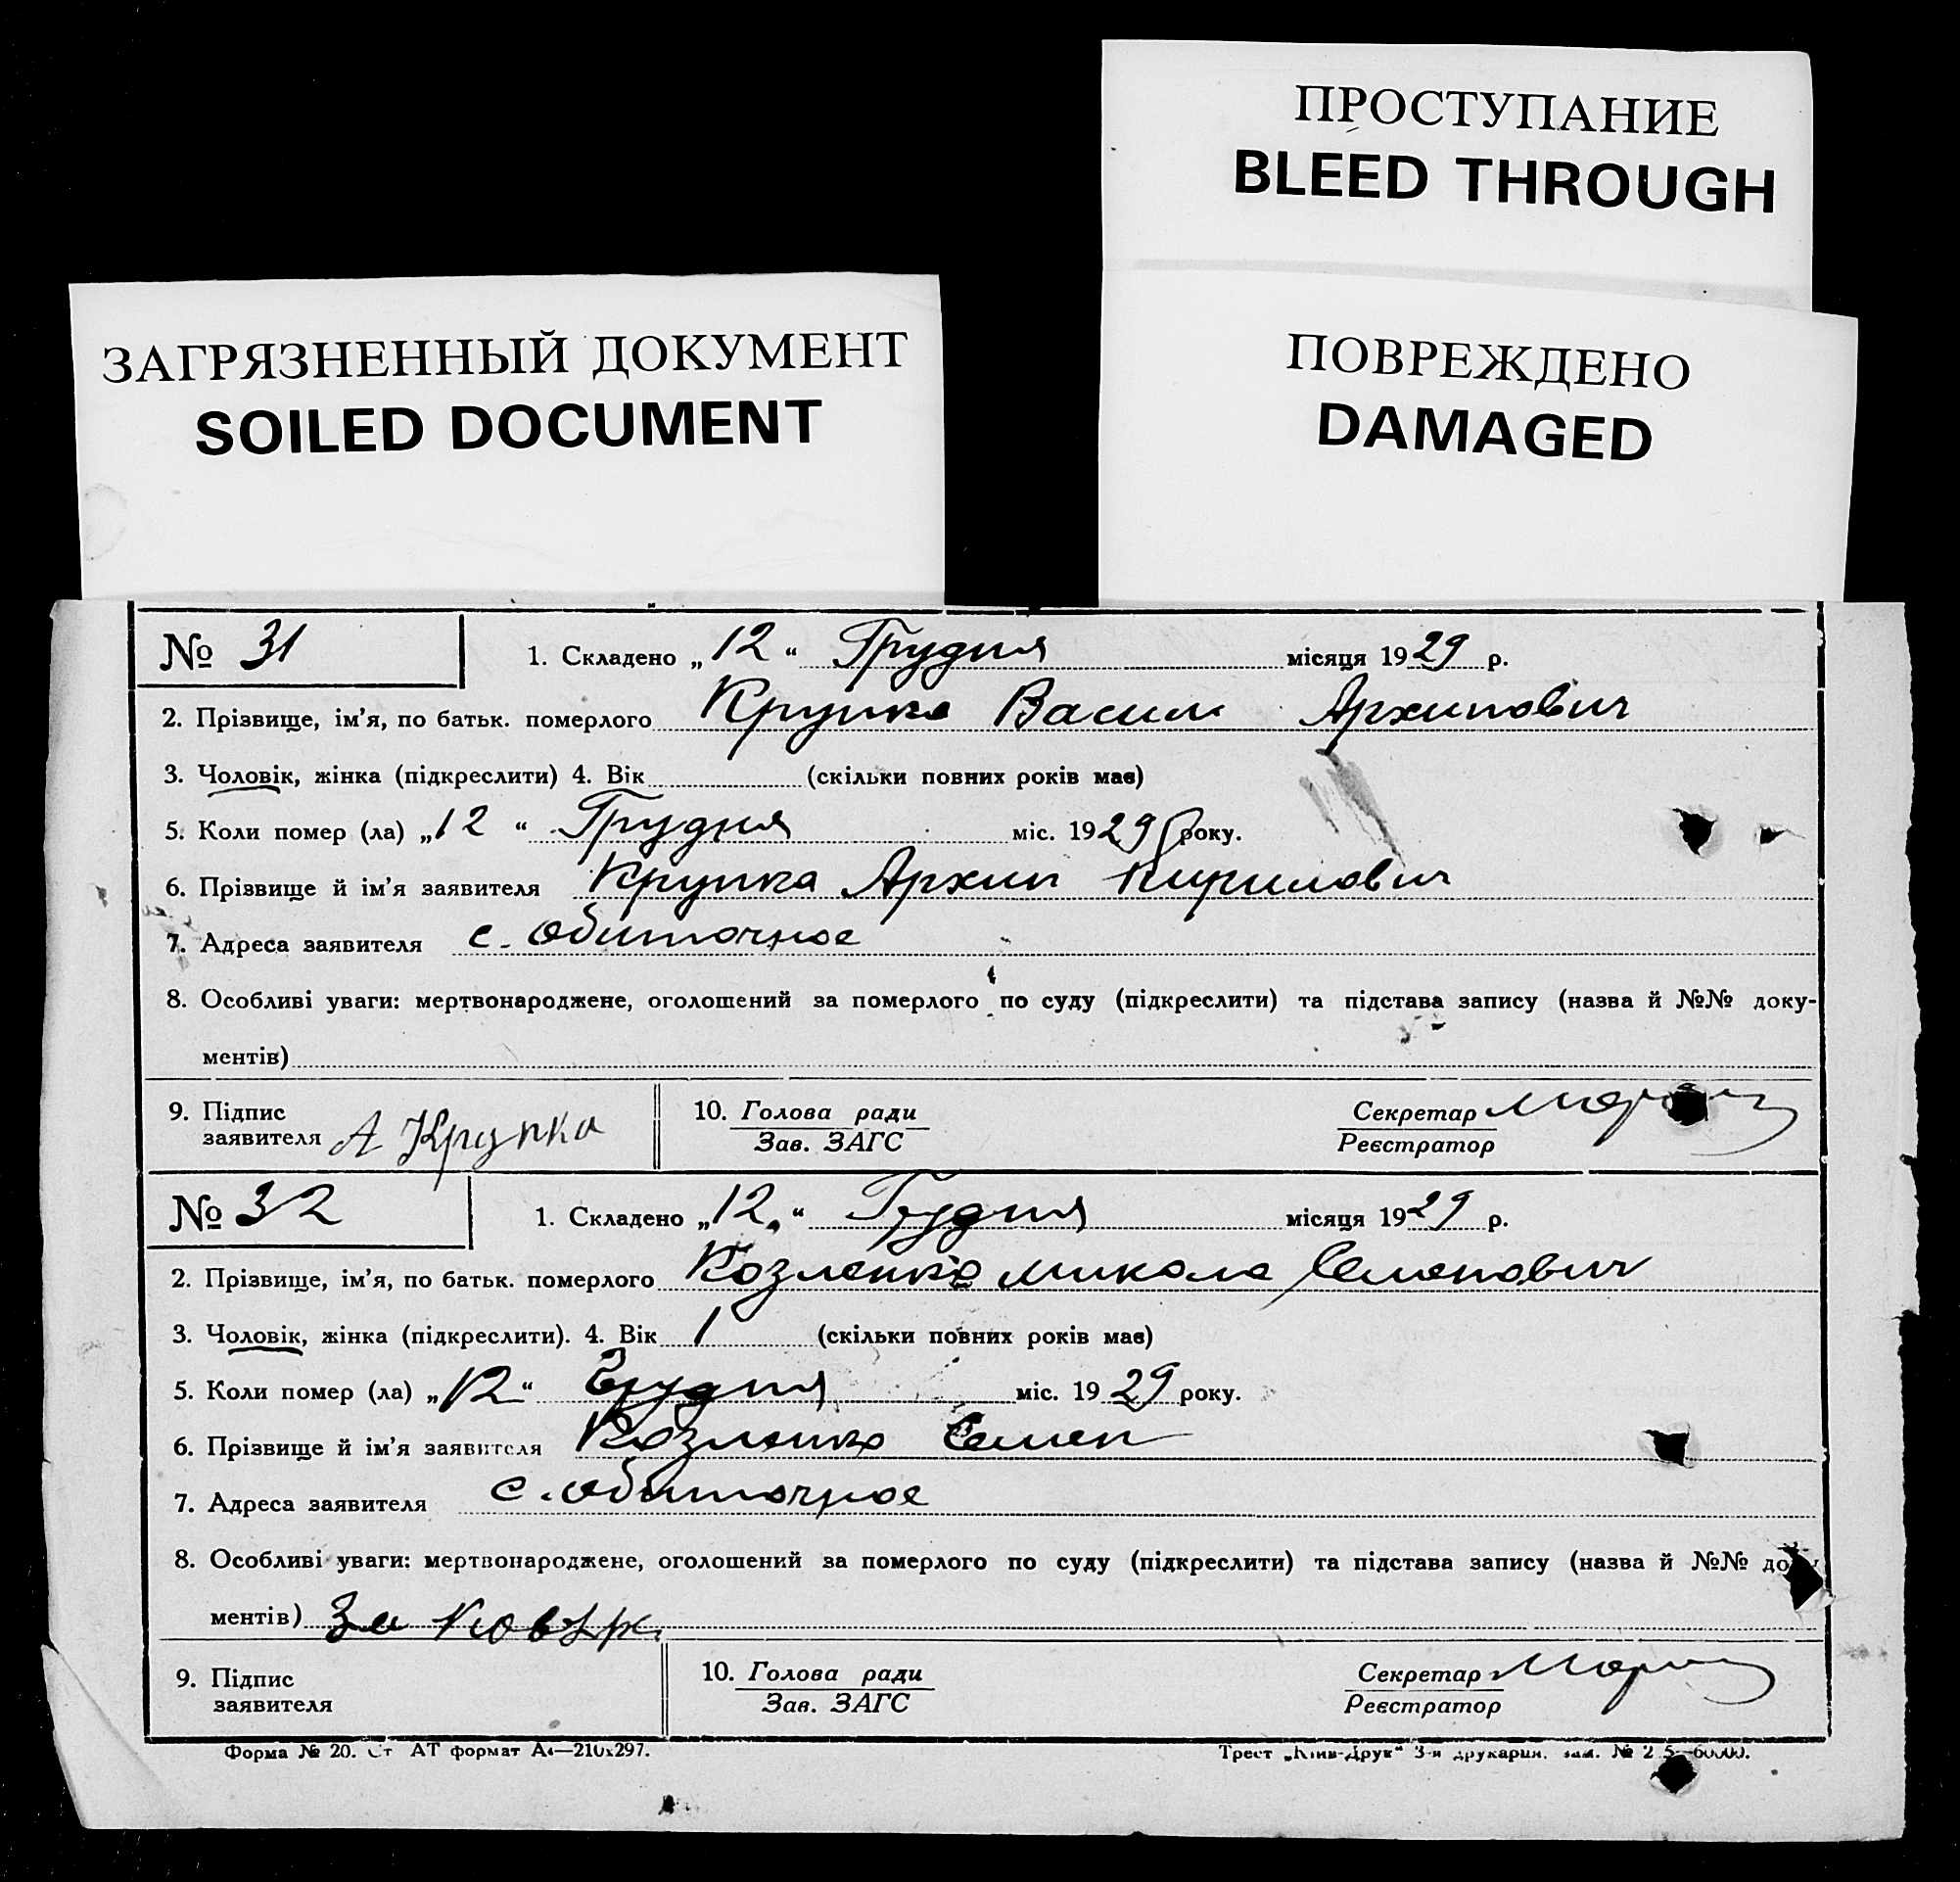 ПРОСТУПАНИЕ
BLEED THROUGH
ЗАГРЯЗНЕННЫЙ ДОКУМЕНТ
SOILED DOCUMENT
ПОВРЕЖДЕНО
DAMAGED
№ 31 1. Складено „12“ Грудня місяця 1929 р.
2. Прізвище, ім'я, по батьк. померлого Крупка Василь Архипович
3. Чоловік, жінка (підкреслити) 4. Вік (скільки повних років має)
5. Коли помер (ла) „12“ Грудня міс. 1929 року.
6. Прізвище й ім'я заявителя Крупка Архип Кирилович
7. Адреса заявителя с. Обиточное
8. Особливі уваги: мертвонароджене, оголошений за померлого по суду (підкреслити) та підстава запису (назва й №№ доку-
ментів)
9. Підпис заявителя А Крупка 10. Голова ради Зав. ЗАГС Секретар Реєстратор
№ 32 1. Складено „12“ Грудня місяця 1929 р.
2. Прізвище, ім'я, по батьк. померлого Козленко Микола Семенович
3. Чоловік, жінка (підкреслити). 4. Вік 1 (скільки повних років має)
5. Коли помер (ла) „12“ Грудня міс. 1929 року.
6. Прізвище й ім'я заявителя Козленко Семен
7. Адреса заявителя с. Обиточное
8. Особливі уваги: мертвонароджене, оголошений за померлого по суду (підкреслити) та підстава запису (назва й №№
ментів) За
9. Підпис заявителя 10. Голова ради Зав. ЗАГС Секретар Реєстратор
Форма № 20. Ст АТ формат А4—210х297. Трест „Київ-Друк“ 3-я друкарня. зам. №